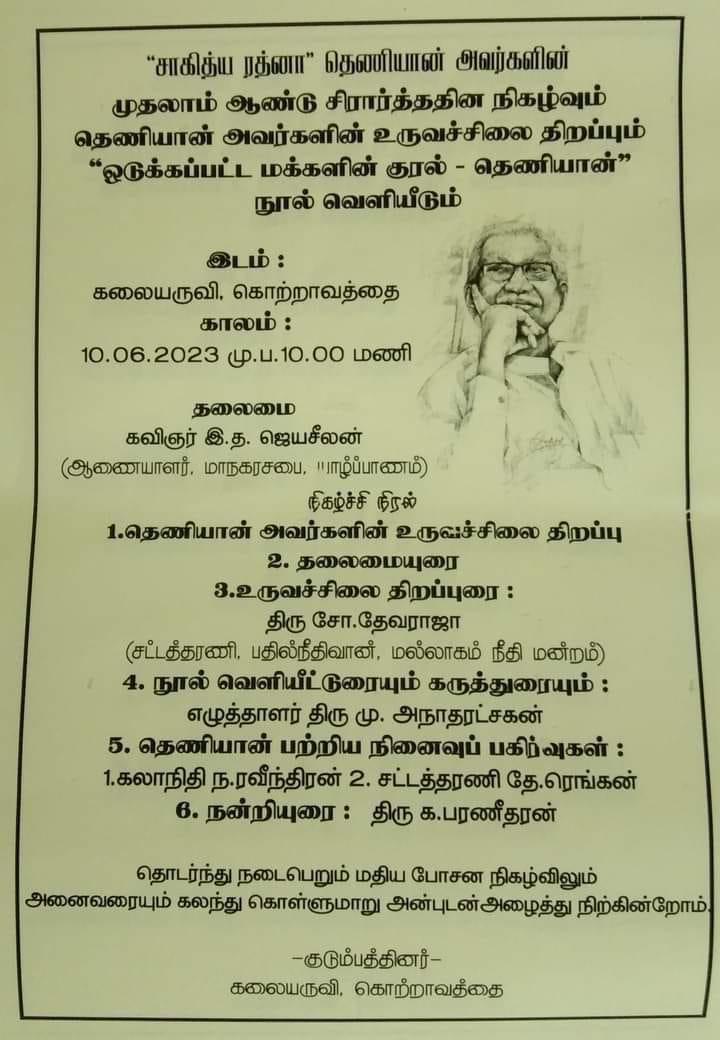 “சாகித்ய ரத்னா” தெணியான் அவர்களின்
முதலாம் ஆண்டு சிரார்த்ததின நிகழ்வும்
தெணியான் அவர்களின் உருவச்சிலை திறப்பும்
“ஒடுக்கப்பட்ட மக்களின் குரல் - தெணியான்”
நூல் வெளியீடும்
இடம் :
கலையருவி, கொற்றாவத்தை
காலம் :
10.06.2023 மு.ப.10.00 மணி
தலைமை
கவிஞர் இ.த. ஜெயசீலன்
(ஆணையாளர், மாநகரசபை, யாழ்ப்பாணம்)
நிகழ்ச்சி நிரல்
1.தெணியான் அவர்களின் உருவச்சிலை திறப்பு
2. தலைமையுரை
3.உருவச்சிலை திறப்புரை :
திரு சோ.தேவராஜா
(சட்டத்தரணி, பதில்நீதிவான், மல்லாகம் நீதி மன்றம்)
4. நூல் வெளியீட்டுரையும் கருத்துரையும் :
எழுத்தாளர் திரு மு. அநாதரட்சகன்
5. தெணியான் பற்றிய நினைவுப் பகிர்வுகள் :
1.கலாநிதி ந.ரவீந்திரன் 2. சட்டத்தரணி தே.ரெங்கன்
6. நன்றியுரை : திரு க.பரணீதரன்
தொடர்ந்து நடைபெறும் மதிய போசன நிகழ்விலும்
அனைவரையும் கலந்து கொள்ளுமாறு அன்புடன்அழைத்து நிற்கின்றோம்.
-குடும்பத்தினர்-
கலையருவி, கொற்றாவத்தை